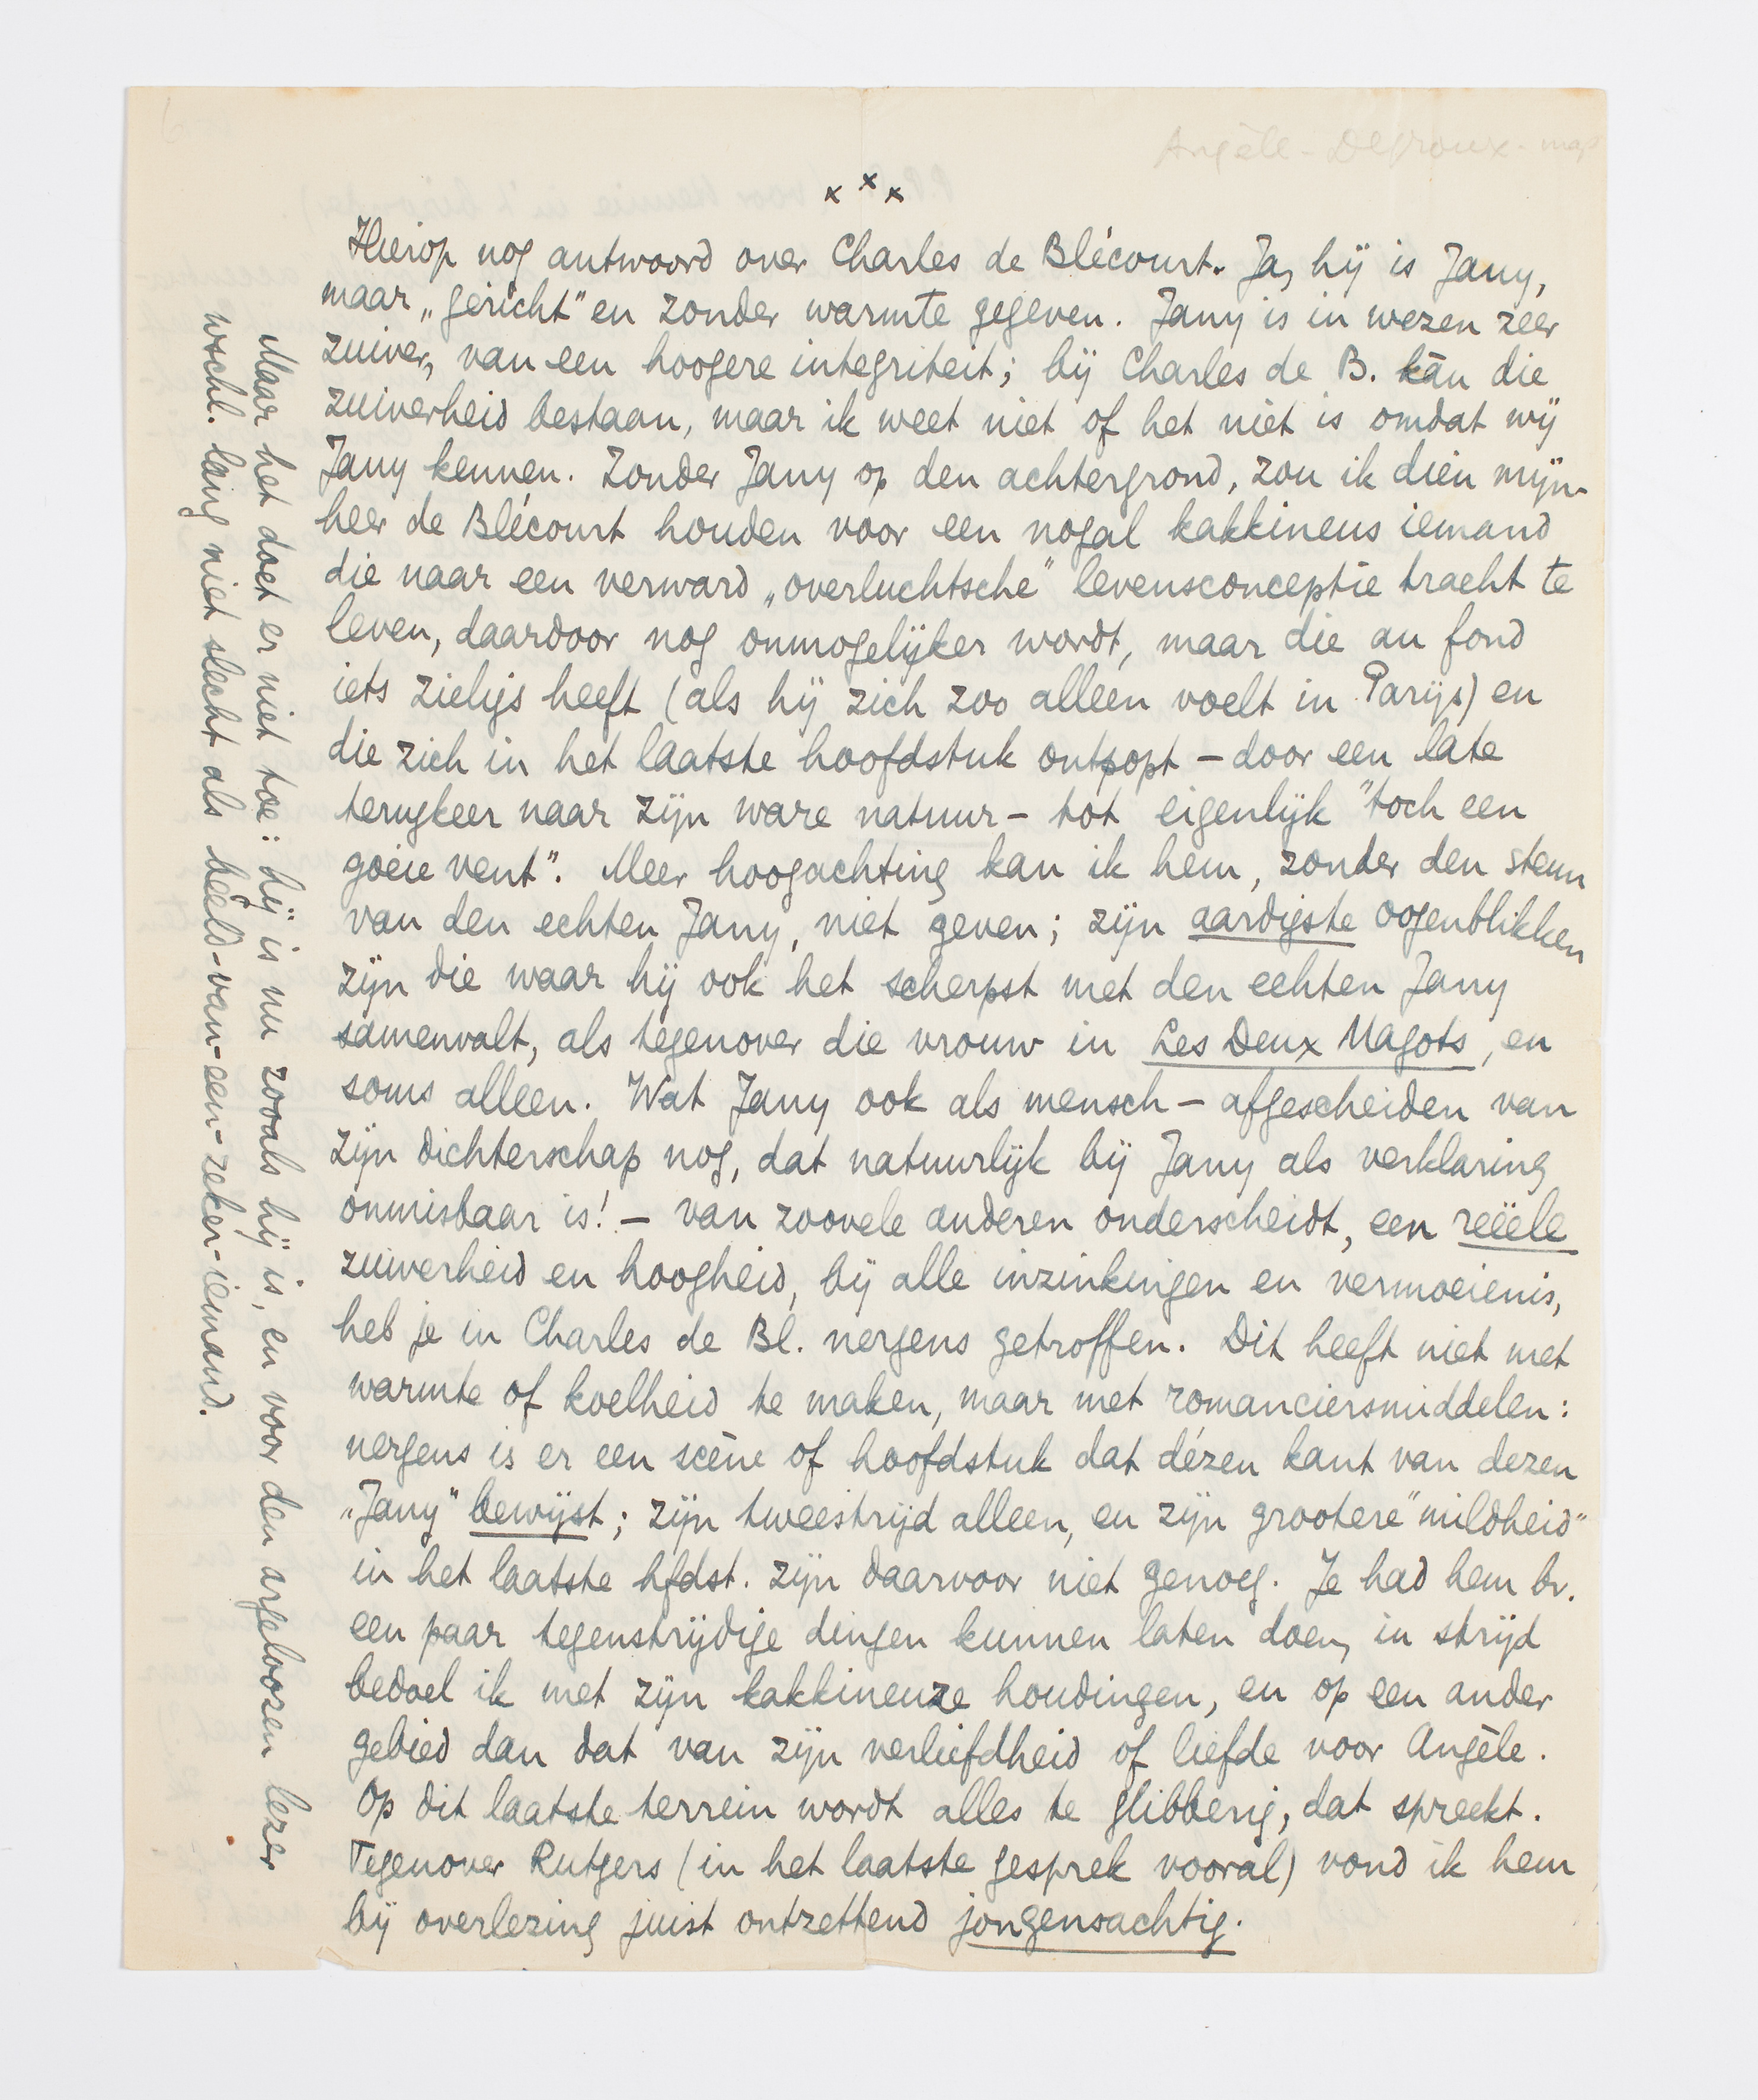 Angèle-Degroux-map
x x x
Hierop nog antwoord over Charles de Blécourt. Ja, hij is Jany,
maar „gericht" en zonder warmte gegeven. Jany is in wezen zeer
zuiver, van een hoogere integriteit; bij Charles de B. kán die
zuiverheid bestaan, maar ik weet niet of het niet is omdat wij
Jany kennen. Zonder Jany op den achtergrond, zou ik dien mijn-
heer de Blécourt houden voor een nogal kakkineus iemand
die naar een verward „overluchtsche" levensconceptie tracht te
leven, daardoor nog onmogelijker wordt, maar die au fond
iets zieligs heeft (als hij zich zoo alleen voelt in Parijs) en
die zich in het laatste hoofdstuk ontpopt – door een late
terugkeer naar zijn ware natuur – tot eigenlijk "toch een
goeie vent". Meer hoogachting kan ik hem, zonder den steun
van den echten Jany, niet geven; zijn aardigste oogenblikken
zijn die waar hij ook het scherpst met den echten Jany
samenvalt, als tegenover die vrouw in Les Deux Magots, en
soms alleen. Wat Jany ook als mensch – afgescheiden van
zijn dichterschap nog, dat natuurlijk bij Jany als verklaring
onmisbaar is! – van zoovele anderen onderscheidt, een reëele
zuiverheid en hoogheid, bij alle inzinkingen en vermoeienis,
heb je in Charles de Bl. nergens getroffen. Dit heeft niet met
warmte of koelheid te maken, maar met romanciersmiddelen:
nergens is er een scène of hoofdstuk dat dézen kant van dezen
„Jany" bewijst; zijn tweestrijd alleen, en zijn grootere "mildheid"
in het laatste hfdst. zijn daarvoor niet genoeg. Je had hem bv.
een paar tegenstrijdige dingen kunnen laten doen, in strijd
bedoel ik met zijn kakkineuze houdingen, en op een ander
gebied dan dat van zijn verliefdheid of liefde voor Angèle.
Op dit laatste terrein wordt alles te glibberig, dat spreekt.
Tegenover Rutgers (in het laatste gesprek vooral) vond ik hem
bij overlezing juist ontzettend jongensachtig.
Maar het doet er niet toe: hij is nu zooals hij is, en voor den argeloozen lezer
wschl. lang niet slecht als beeld-van-een-zeker-iemand.